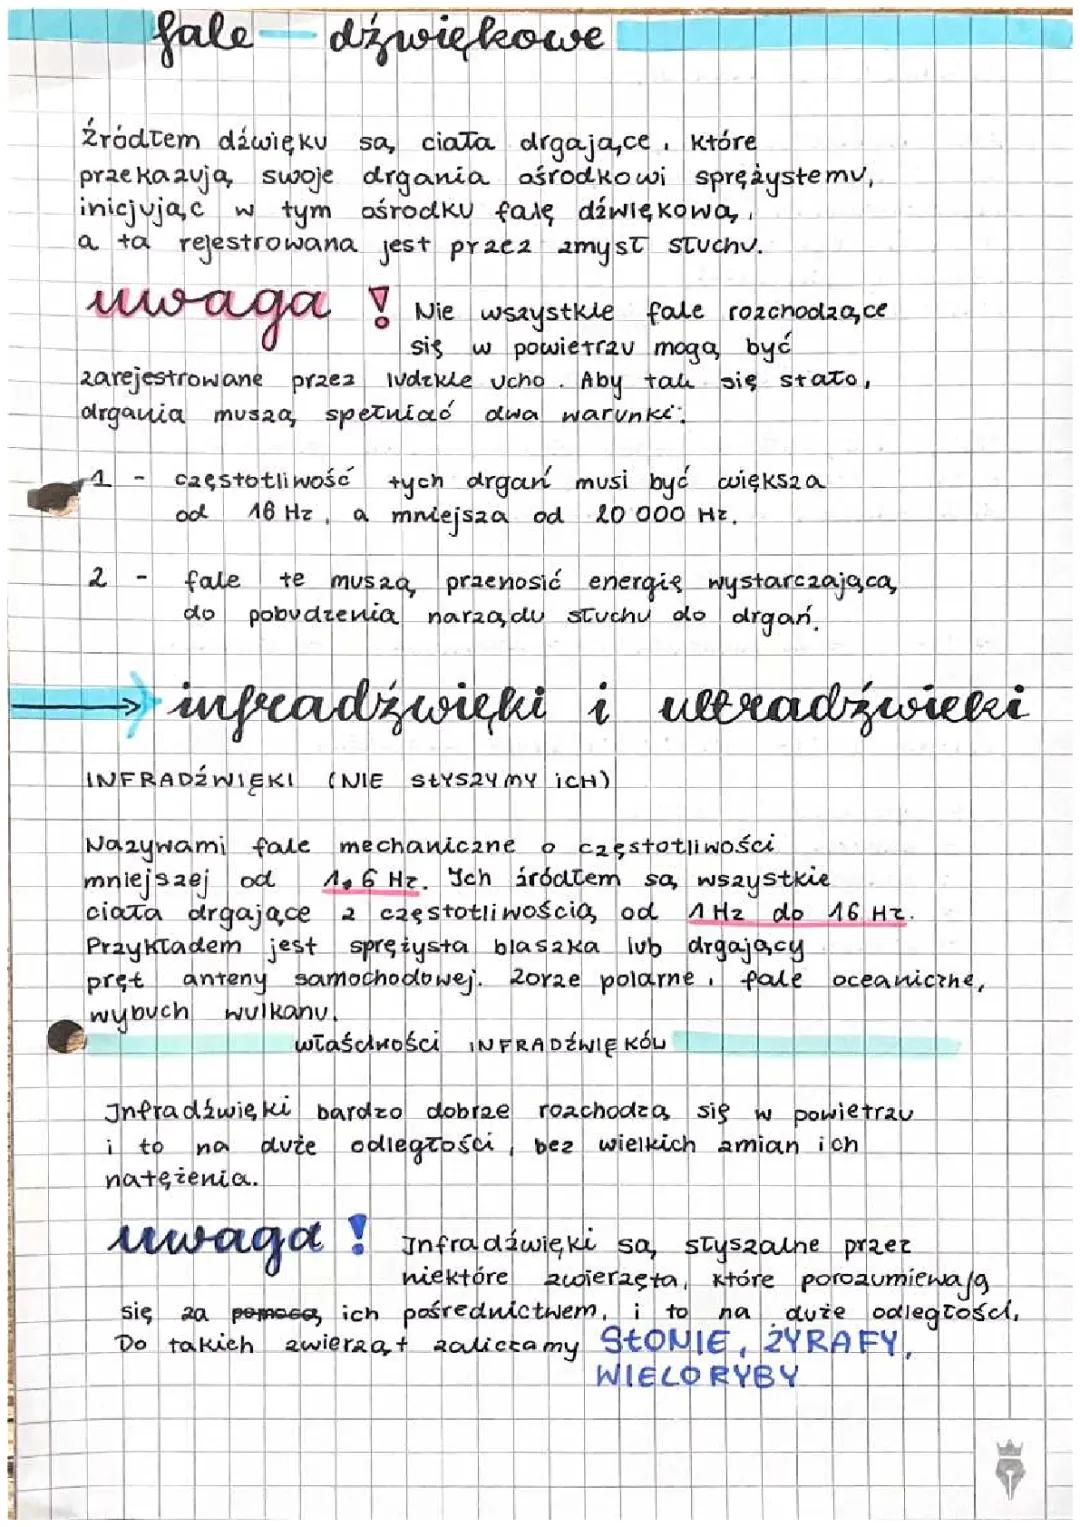 fale dźwiękowe
Źródłem dźwięku są ciała drgające, które
przekazują swoje drgania ośrodkowi sprężystemu,
inicjując w tym ośrodku falę dźwiękową,
a ta rejestrowana jest przez zmysł słuchu.
uwaga! Nie wszystkie fale rozchodzące
się w powietrzu mogą być
zarejestrowane przez ludzkie ucho. Aby tak się stało,
drgania muszą spełniać dwa warunki:
1 - częstotliwość tych drgań musi być większa
od 16 Hz, a mniejsza od 20 000 Hz.
2 - fale te muszą przenosić energię wystarczającą
do pobudzenia narządu słuchu do drgań.
infradźwięki i ultradźwieki
INFRADŹWIĘKI (NIE SŁYSZYMY ICH)
Nazywami fale mechaniczne o częstotliwości
mniejszej od 1,6 Hz. Ich źródłem są wszystkie
ciała drgające z częstotliwością od 1 Hz do 16 Hz.
Przykładem jest sprężysta blaszka lub drgający
pręt anteny samochodowej. Zorze polarne, fale oceaniczne,
wybuch wulkanu.
właściwości INFRADŹWIĘKÓW
Infradźwięki bardzo dobrze rozchodzą się w powietrzu
i to na duże odległości, bez wielkich zmian ich
natężenia.
uwaga! Infradźwięki są słyszalne przez
niektóre zwierzęta, które porozumiewają
się za pomocą ich pośrednictwem, i to na duże odległości.
Do takich zwierząt zaliczamy SŁONIE, ŻYRAFY,
WIELORYBY